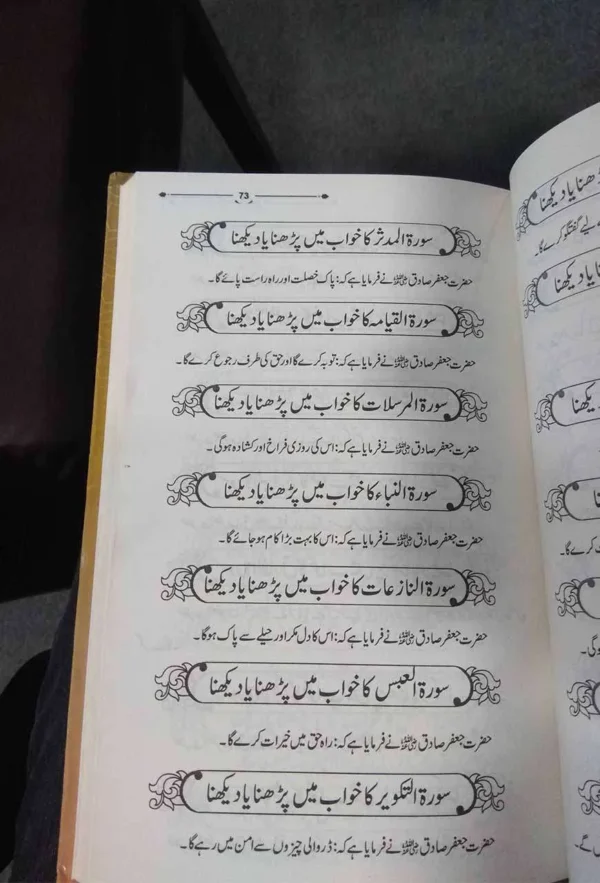 73
سورۃ المدثر کا خواب میں پڑھنا یا دیکھنا
حضرت جعفر صادق رضی اللہ عنہ نے فرمایا ہے کہ: پاک خصلت اور راہ راست پائے گا۔
سورۃ القیامہ کا خواب میں پڑھنا یا دیکھنا
حضرت جعفر صادق رضی اللہ عنہ نے فرمایا ہے کہ: توبہ کرے گا اور حق کی طرف رجوع کرے گا۔
سورۃ المرسلات کا خواب میں پڑھنا یا دیکھنا
حضرت جعفر صادق رضی اللہ عنہ نے فرمایا ہے کہ: اس کی روزی فراخ اور کشادہ ہوگی۔
سورۃ النباء کا خواب میں پڑھنا یا دیکھنا
حضرت جعفر صادق رضی اللہ عنہ نے فرمایا ہے کہ: اس کا بہت بڑا کام ہو جائے گا۔
سورۃ النازعات کا خواب میں پڑھنا یا دیکھنا
حضرت جعفر صادق رضی اللہ عنہ نے فرمایا ہے کہ: اس کا دل مکر اور حیلے سے پاک ہوگا۔
سورۃ العبس کا خواب میں پڑھنا یا دیکھنا
حضرت جعفر صادق رضی اللہ عنہ نے فرمایا ہے کہ: راہ حق میں خیرات کرے گا۔
سورۃ التکویر کا خواب میں پڑھنا یا دیکھنا
حضرت جعفر صادق رضی اللہ عنہ نے فرمایا ہے کہ: ڈر والی چیزوں سے امن میں رہے گا۔
پڑھنا یا دیکھنا
لیے گفتگو کرے گا۔
یا دیکھنا
دیکھنا
یا دیکھنا
کرے گا۔